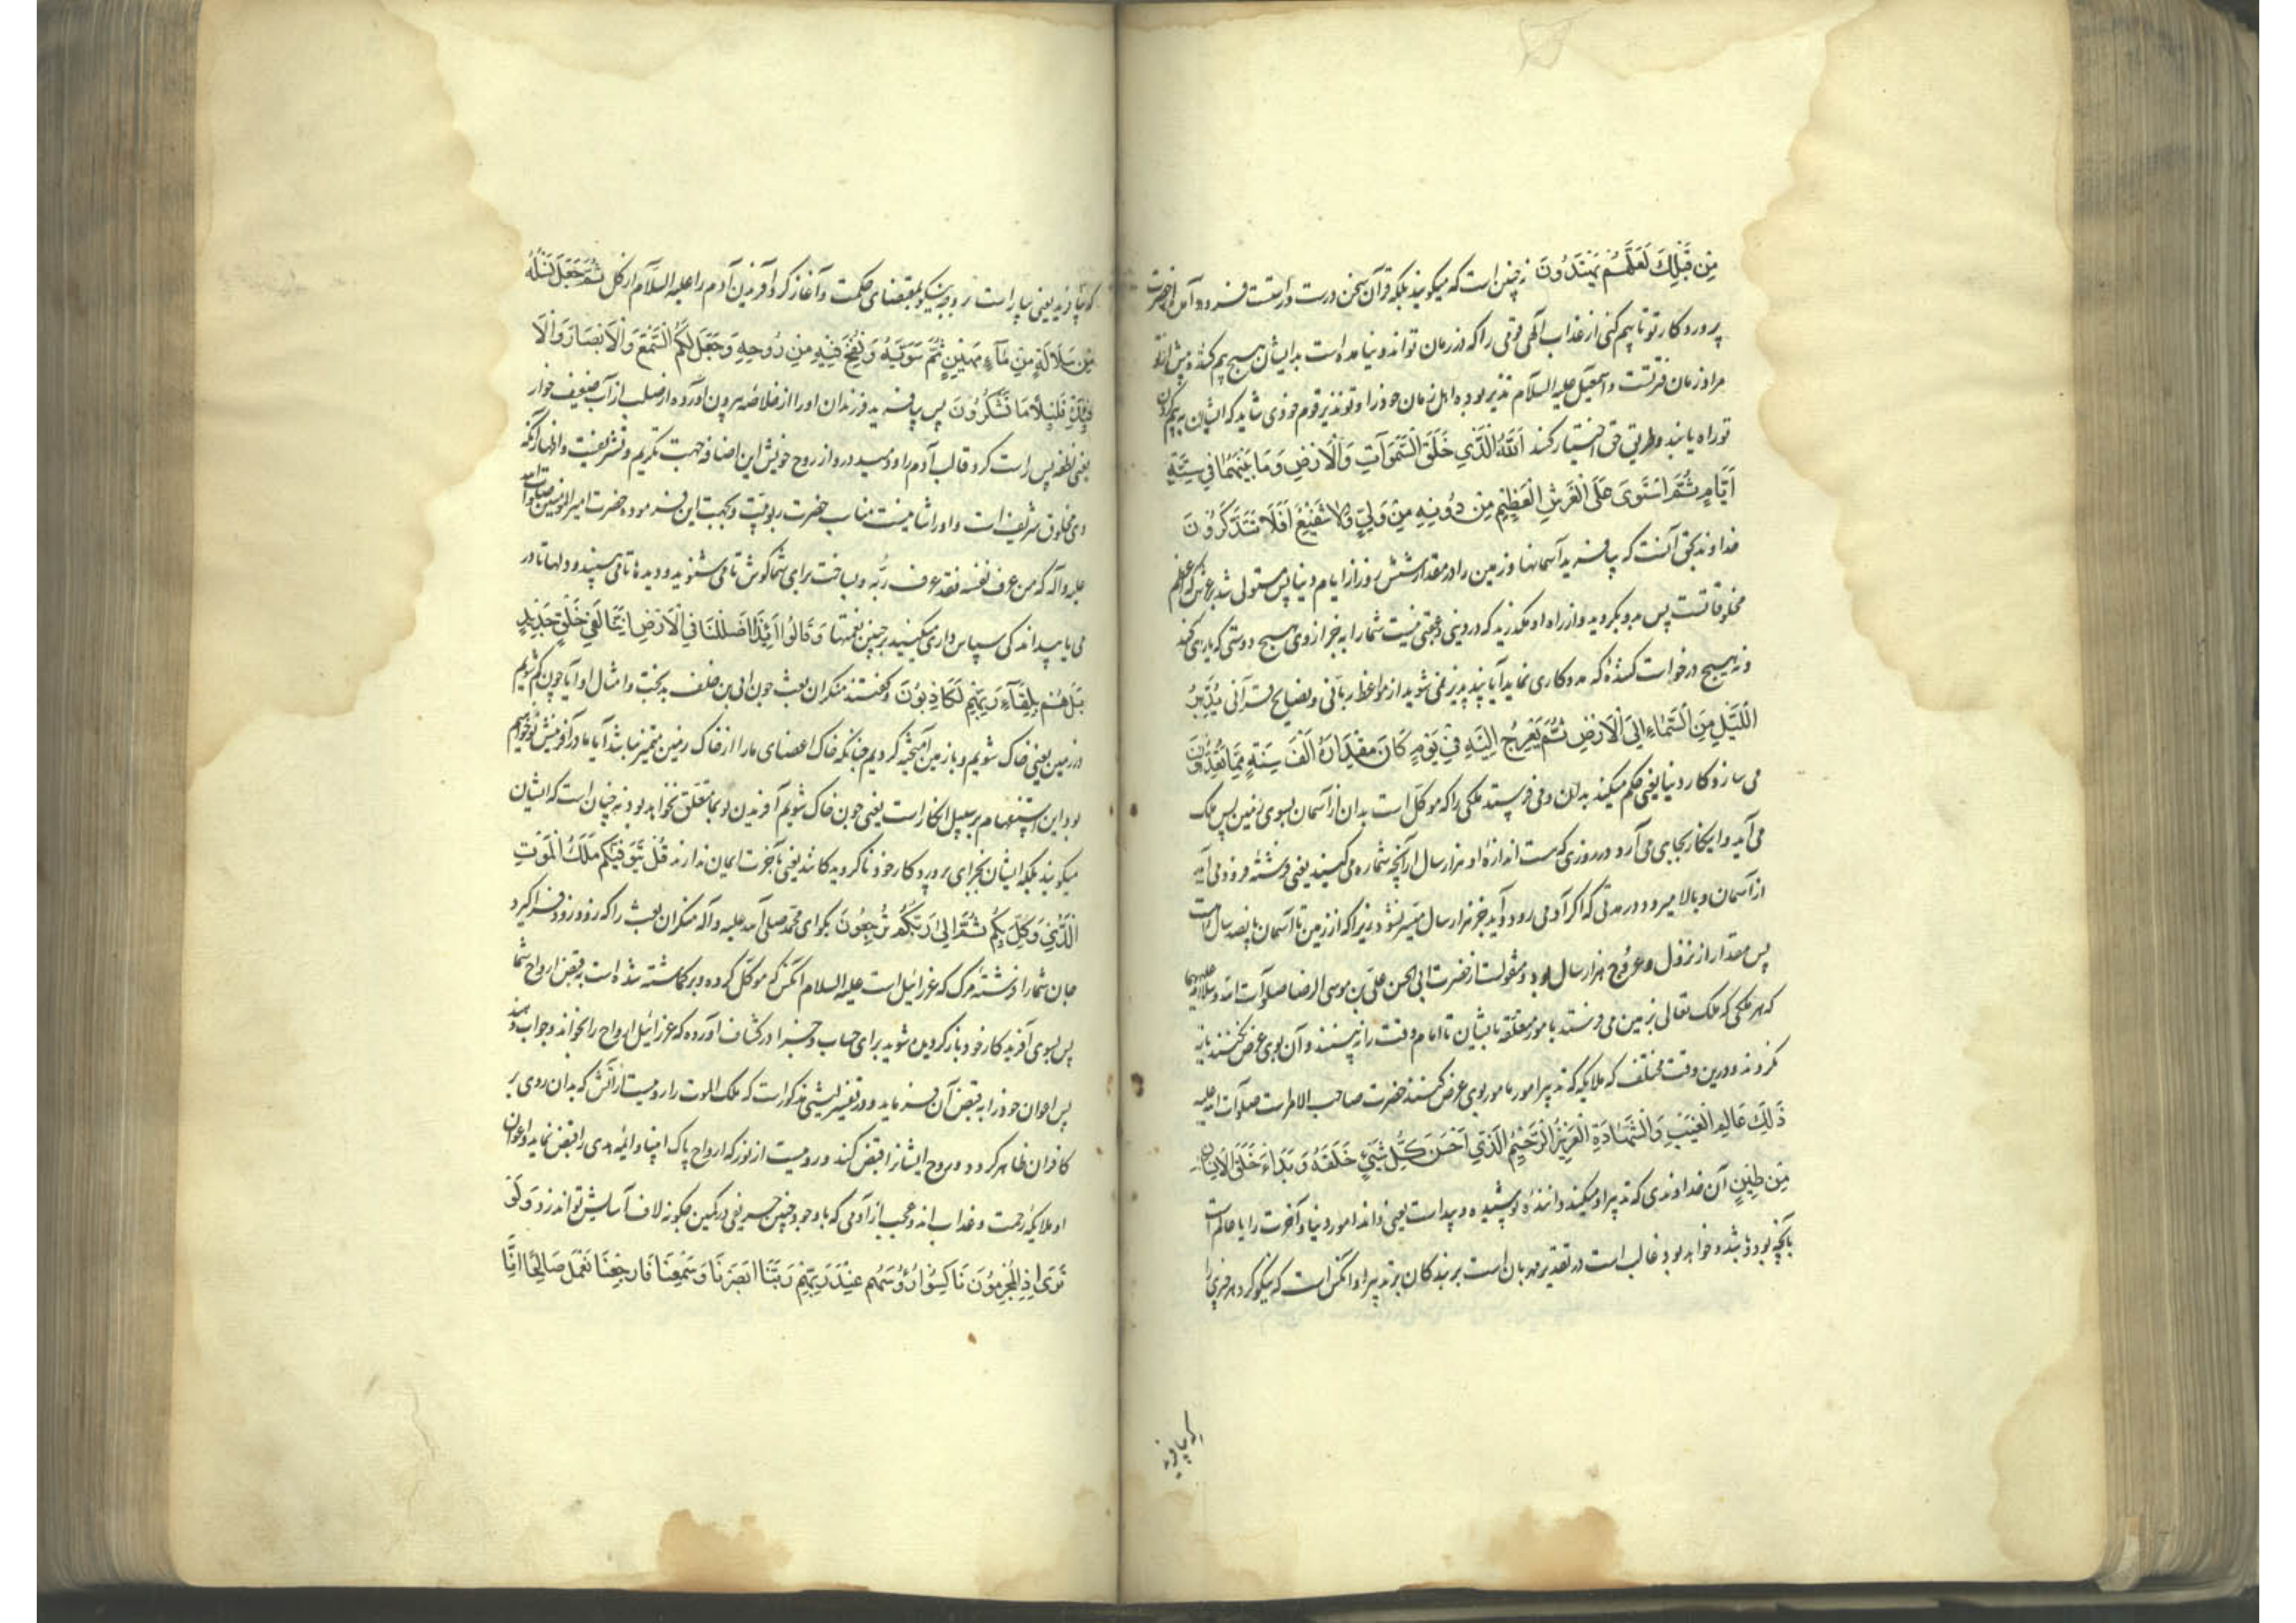 مِن قَبْلِكَ لَعَلَّهُمْ يَهْتَدُونَ نه چنین است که میکویند بلکه قرآن سخن درست و راستست فرود آمده از حضرت
پروردکار تو تا بیم کنی از عذاب الهی قومی را که در زمان تو اند و نیامده است بدایشان هیچ بیم کننده پیش از تو
مراد زمان فترتست و اسمعیل علیه السلام نذیر بوده اهل زمان خود را و تو نذیر قوم خودی شاید که ایشان به بیم کردن
تو راه یابند و طریق حق اختیار کنند اَللهُ الَّذِي خَلَقَ السَّمَوَاتِ وَالْاَرْضِ وَمَا بَيْنَهُمَا فِي سِتَّةِ
اَيَّامٍ ثُمَّ اسْتَوَى عَلَى الْعَرْشِ الْعَظِيمِ مِن دُونِهِ مِنْ وَلِيٍّ وَلَا شَفِيعٍ اَفَلَا تَتَذَكَّرُونَ
خداوند بحق آنست که بیافرید آسمانها و زمین را در مقدار شش روز از ایام دنیا پس مستولی شد بر عرش که اعظم
مخلوقاتست پس بدو بکروید و از راه او مکذرید که در دینی و عقبی نیست شما را به جز از وی هیچ دوستی که یاری کند
و نه هیچ درخواست کننده که مددکاری نماید آیا پند پذیر نمی شوید از مواعظ ربانی و نصایح قرآنی يُدَبِّرُ
اللَّيْلِ مِنَ السَّمَاءِ اِلَى الْاَرْضِ ثُمَّ يَعْرُجُ اِلَيْهِ فِي يَوْمٍ كَانَ مِقْدَارُهُ اَلْفَ سَنَةٍ مِمَّا تَعُدُّونَ
می سازد کار دنیا یعنی حکم میکند بدان و می فرستد ملکی را که موکل است بدان از آسمان بسوی زمین پس ملک
می آید و اینکار بجای می آرد در روزی که هست اندازه او هزار سال از آنچه شماره می کنید یعنی فرشته فرود می آید
از آسمان و بالا میرود در مدتی که اکر آدمی رود و آید جز هزار سال میسر نشود زیرا که از زمین تا آسمان پانصد سال است
پس مقدار از نزول و عروج هزار سال بود و منقولست از حضرت ابی الحسن علی بن موسی الرضا صلوات الله و سلامه علیهما
که هر ملکی که ملک تعالی بزمین می فرستد بامور متعلقه بایشان تا امام وقت را نه بینند و آن بوی عرض نکنند باز
نکردند و درین وقت مختلف که ملایکه که تدبیر امور مامور بوی عرض کنند حضرت صاحب الامر است صلوات الله علیه
ذَلِكَ عَالِمُ الْغَيْبِ وَالشَّهَادَةِ الْعَزِيزُ الرَّحِيمُ الَّذِي اَحْسَنَ كُلَّ شَيْءٍ خَلَقَهُ وَبَدَاءَ خَلْقَ الْاِنْسَانِ
مِن طِينٍ آن خداوندی که تدبیر او میکند داننده پوشیده و پیداست یعنی داند امور دنیا و آخرت را یا عالم است
بآنچه بود و باشد و خواهد بود غالب است در تقدیر مهربان است بر بندکان بر تدبیر او آنکس است که نیکو کرد هر چیزی را
که بیافرید
که بیافرید یعنی بیاراست بر وجه نیکو بمقتضای حکمت و آغاز کرد آفریدن آدم را علیه السلام از کل ثُمَّ جَعَلَ نَسْلَهُ
مِن سُلَالَةٍ مِن مَاءٍ مَهِينٍ ثُمَّ سَوَّيهُ وَنَفَخَ فِيهِ مِن رُوحِهِ وَجَعَلَ لَكُمُ السَّمْعَ وَالْاَبْصَارَ وَالْاَ
فْئِدَةَ قَلِيلًا مَا تَشْكُرُونَ پس بیافرید فرزندان او را از خلاصه بیرون آورده از صلب از آب ضعیف خوار
یعنی نطفه پس راست کرد قالب آدم را و دمید درو از روح خویش این اضافه جهت تکریم و تشریفست و اظهار آنکه
وی مخلوق شریف است و او را شانیست مناسب حضرت ربوبیت و بجهت این فرموده حضرت امیر المومنین صلوات الله
علیه و آله که من عرف نفسه فقد عرف ربه و بساخت برای شما کوش تا می شنوید و دیده ها تا می بینید و دلها تا در
می یابید اندکی سپاس داری میکنید بر چنین نعمتها وَقَالُوا اَئِذَا ضَلَلْنَا فِي الْاَرْضِ اَئِنَّا لَفِي خَلْقٍ جَدِيدٍ
بَلْ هُمْ بِلِقَاءِ رَبِّهِمْ لَكَاذِبُونَ و کفتند منکران بعث چون ابی بن خلف بدبخت و امثال او آیا چون کم شویم
در زمین یعنی خاک شویم و با زمین آمیخته کردیم چنانکه خاک اعضای ما را از خاک زمین متمیز نباشد آیا ما در آفرینش نو خواهیم
بود این استفهام بر سبیل انکار است یعنی چون خاک شویم آفریدن نو بما متعلق نخواهد بود نه چنان است که ایشان
میکویند بلکه ایشان بجزای پروردکار خود ناکرویدکانند یعنی بآخرت ایمان ندارند قُلْ يَتَوَفَّيكُمْ مَلَكُ الْمَوْتِ
الَّذِي وُكِّلَ بِكُمْ ثُمَّ اِلَى رَبِّكُمْ تُرْجَعُونَ بکو ای محمد صلی الله علیه و آله منکران بعث را که زود زود فرا کیرد
جان شما را فرشته مرک که عزرائیل است علیه السلام آنکس که موکل کرده و برکماشته شده است به قبض ارواح شما
پس بسوی آفریدکار خود باز کردیده شوید برای حساب و جزا در کشاف آورده که عزرائیل ارواح را بخواند و جواب دهند
پس اعوان خود را به قبض آن فرماید و در تفسیر لیثی مذکور است که ملک الموت را رویست از آتش که بدان روی بر
کافران ظاهر کردد و روح ایشانرا قبض کند و رویست از نور که ارواح پاک انبیا و ائیه هدی را قبض نماید و اعوان
او ملایکه رحمت و عذاب اند و عجب از آدمی که با وجود چنین حریفی در کمین چکونه لاف آسایش تواند زد وَلَوْ
تَرَى اِذِ الْمُجْرِمُونَ نَاكِسُوا رُؤُسِهِمْ عِنْدَ رَبِّهِمْ رَبَّنَا اَبْصَرْنَا وَسَمِعْنَا فَارْجِعْنَا نَعْمَلْ صَالِحًا اِنَّا